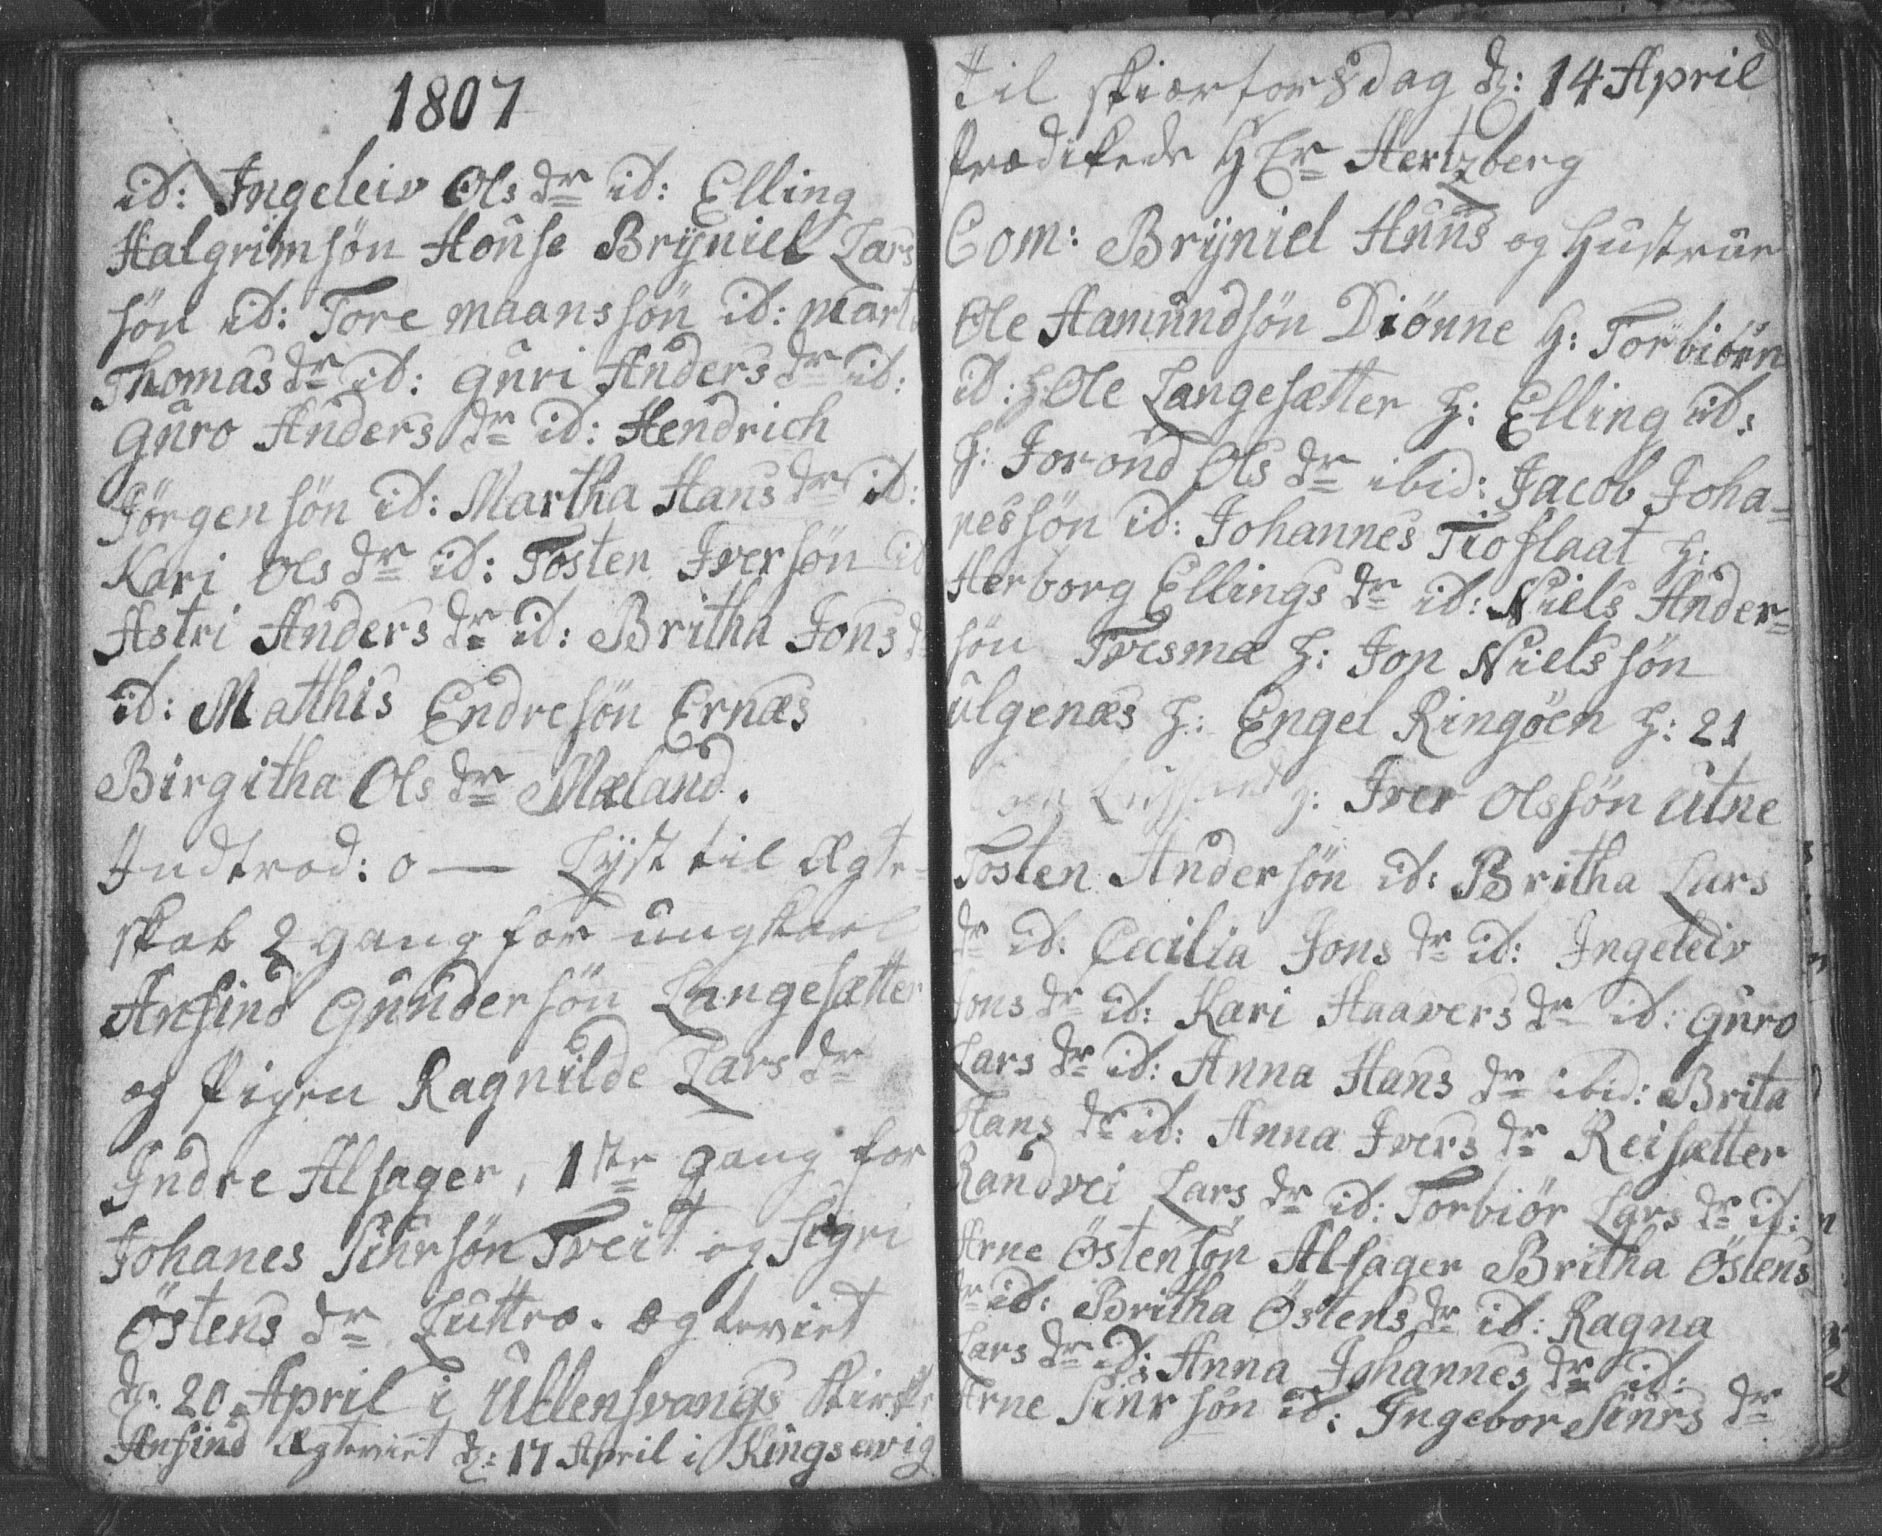 1807
id: Ingeleiv Ols dr id: Elling
Halgrimsøn House Brÿniel Lars
søn id: Tore maanssøn id: mart
Thomas dr id: guri Anders dr id:
guro Anders dr id: Hendrich
Jørgensøn id: Martha Hans dr id:
Kari Ols dr id: Tosten Iversøn id
Astri Anders dr id: Britha Jons dr
id: Matthis Endresøn Ernæs
Birgitha Ols dr Mæland.
Indtrod: 0 — Lÿst til Ægte-
skab 2 gang for ungkarl
Ansind Gundersøn Langesætter
og Pigen Ragnilde Lars dr
Indre Alsager, 1ste gang for
Johanes Siursøn Tveit og Sigri
Östens dr Luttro. Ægteviet
d: 20 April i Ullensvangs Kirke
Ansind Ægteviet d: 17 April i Kingservig
til skiærtorsdag d: 14 April
Prædikede HEr Hertzberg
Com: Brÿniel Huus og Hustrue
Ole Aamundsøn Diønne h: Torbiørn
id: h: Ole Langesætter h: Elling id:
h: Jorond Ols dr ibid: Jacob Joha-
nessøn id: Johannes Tioflaat h:
Herborg Ellings dr id: Niels Ander-
søn Tvesmæ h: Jon Nielssøn
ulgenæs h: Engel Ringøen h: 21
h: Iver Olssøn Utne
Tosten Andersøn id: Britha Lars
dr id: Cecilia Jons dr id: Ingeleiv
Jons dr id: Kari Haavers dr id: guro
Lars dr id: Anna Hans dr ibid: Brita
Hans dr id: Anna Ivers dr Reisætter
Randvei Lars dr id: Torbiør Lars dr id:
Arne Östensøn Alsager Britha Östens
dr id: Britha Östens dr id: Ragna
Lars dr id: Anna Johannes dr id:
Arne Siursøn id: Ingebor Siurs dr